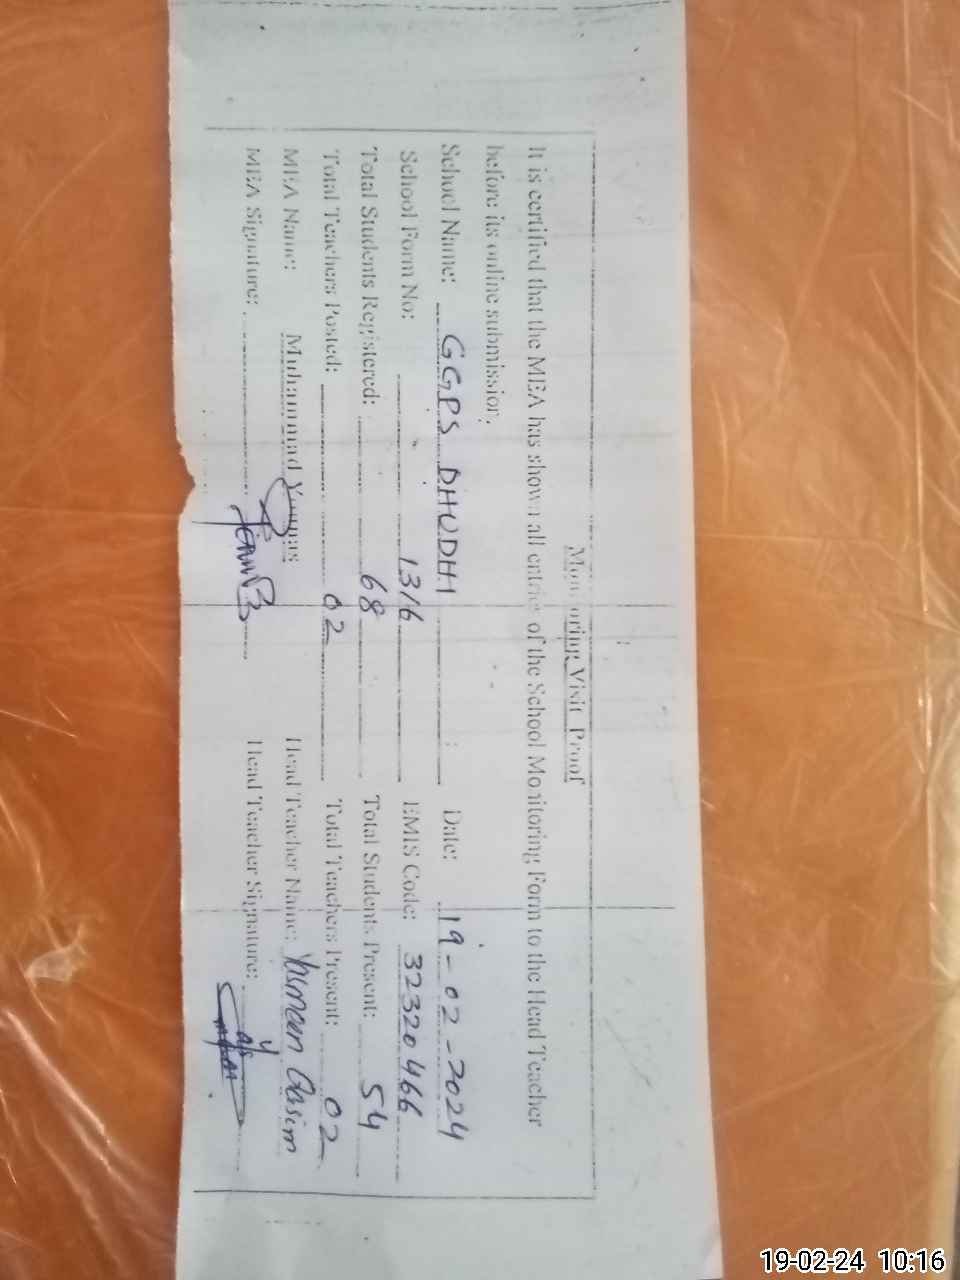 Monitoring Visit Proof
It is certified that the MEA has shown all entries of the School Monitoring Form to the Head Teacher
before its online submission.
School Name: GGPS DHUDHI Date: 19-02-2024
School Form No: 1316 EMIS Code: 32320466
Total Students Registered: 68 Total Students Present: 54
Total Teachers Posted: 02 Total Teachers Present: 02
MEA Name: Muhammad Younas Head Teacher Name: Yasmeen Qasim
MEA Signature: Head Teacher Signature:
19-02-24 10:16